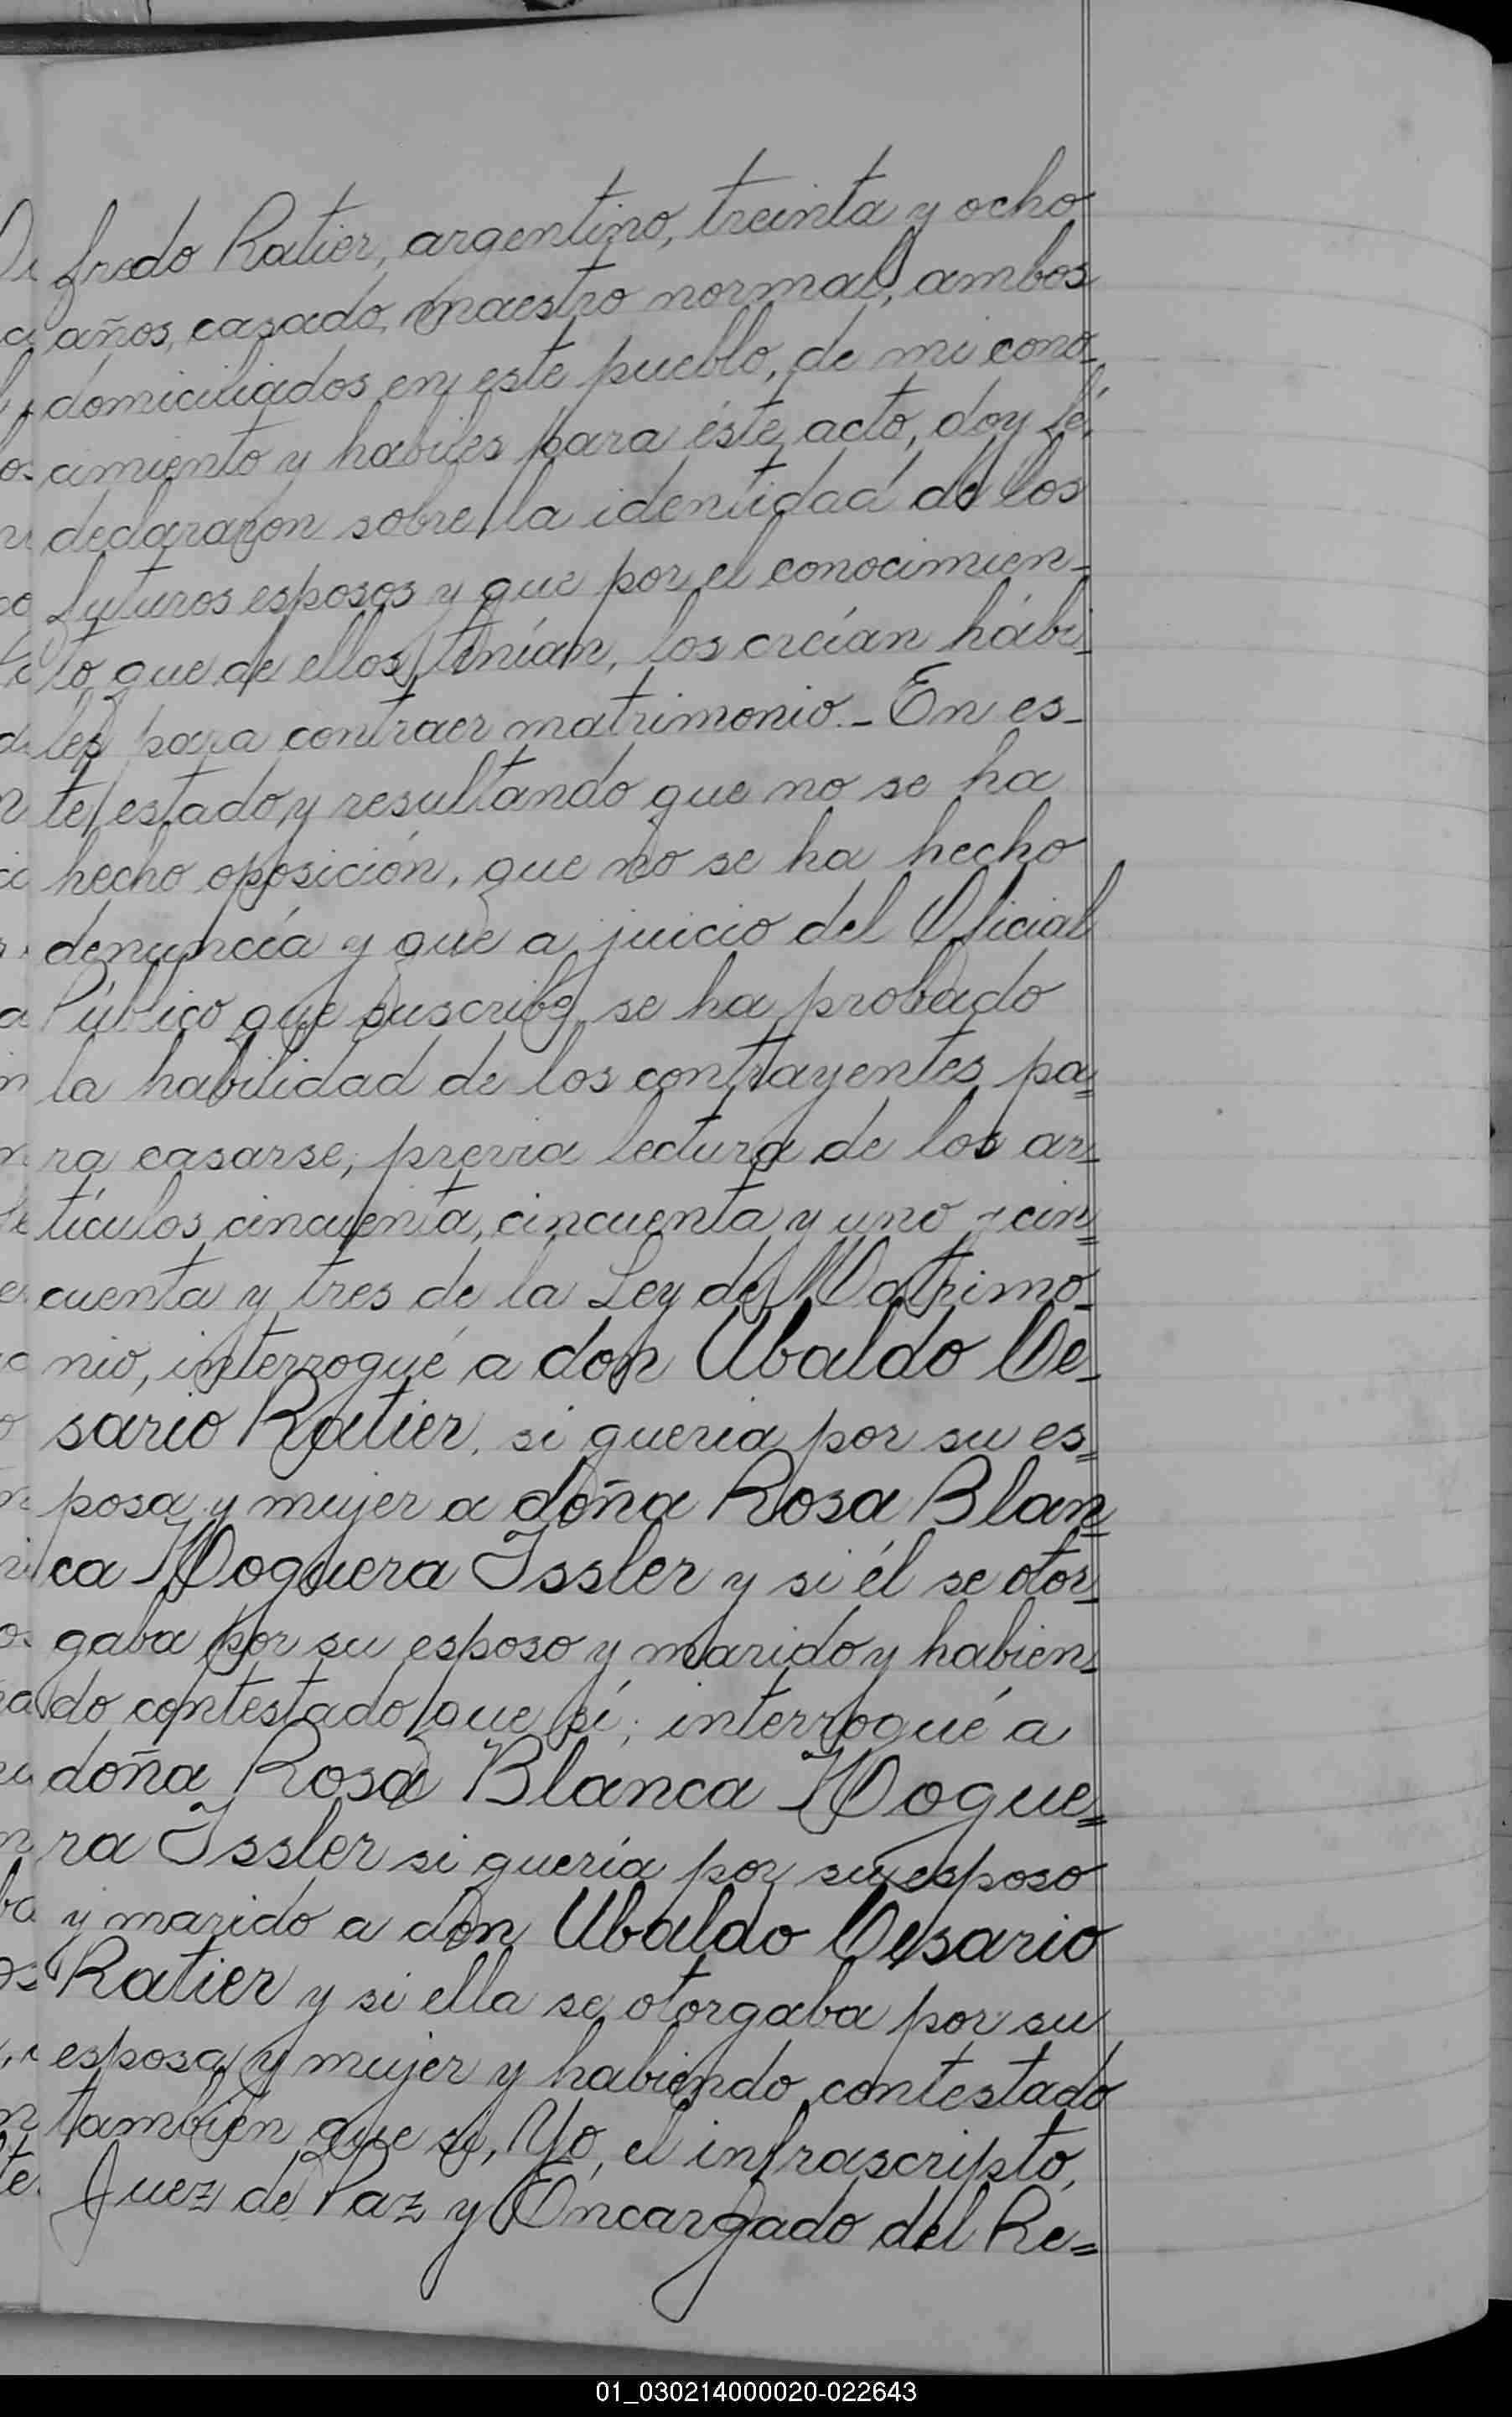 fredo Ratier, argentino, treinta y ocho
años, casado, maestro normal, ambos
domiciliados en este pueblo, de mi cono-
cimiento y habiles para éste acto, doy fé,
declararon sobre la identidad de los
futuros esposos y que por el conocimien-
to que de ellos tenían, los creían hábi-
les para contraer matrimonio.- En es-
te estado y resultando que no se ha
hecho oposición, que no se ha hecho
denuncia y que a juicio del Oficial
Público que suscribe, se ha probado
la habilidad de los contrayentes pa=
ra casarse, previa lectura de los ar-
tículos cincuenta, cincuenta y uno y cin=
cuenta y tres de la Ley de Matrimo-
nio, interrogué a don Ubaldo Ce-
sario Ratier, si queria por su es=
posa y mujer a doña Rosa Blan=
ca Noguera Issler y si él se otor-
gaba por su esposo y marido y habien-
do contestado que sí, interrogué a
doña Rosa Blanca Nogue=
ra Issler si quería por su esposo
y marido a don Ubaldo Cesario
Ratier y si ella se otorgaba por su
esposa y mujer y habiendo contestado
también que si, Yo, el infrascripto,
Juez de Paz y Encargado del Re=
01_030214000020-022643